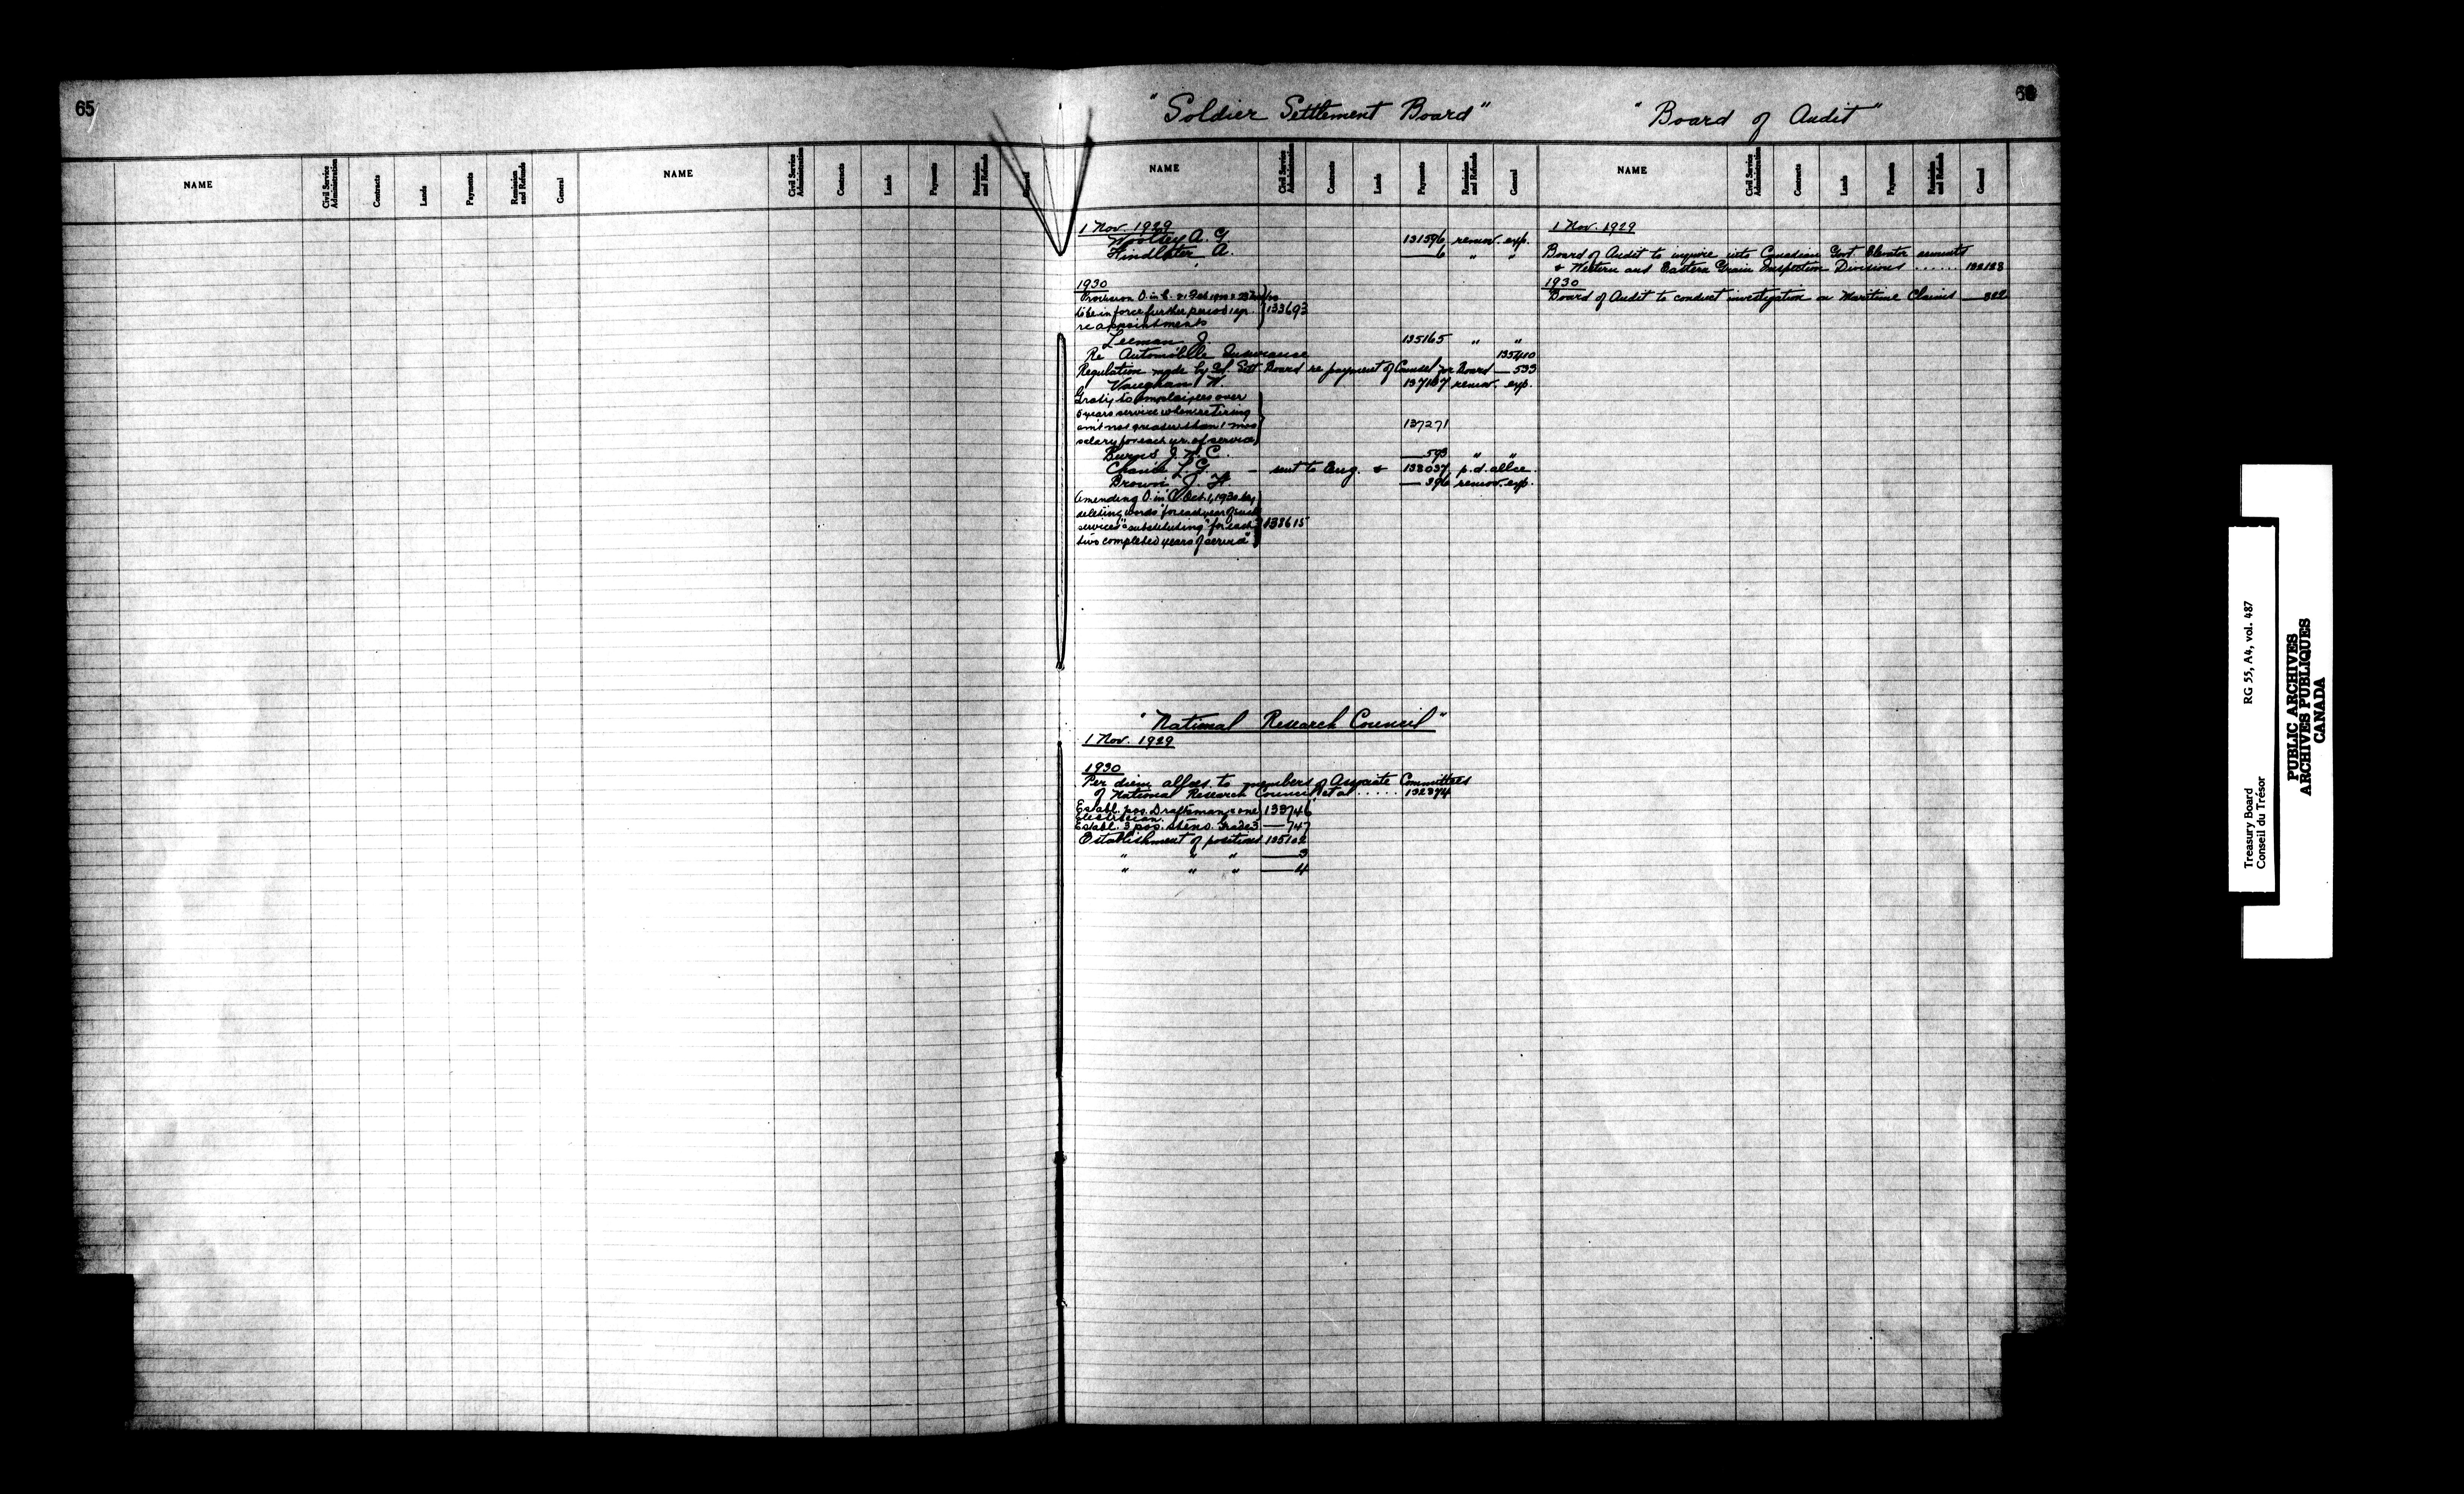 65
"Soldier Settlement Board"
"Board of Audit"
NAME
Civil Service Administration
Contracts
Lands
Payments
Remission and Refunds
General
NAME
Civil Service Administration
Contracts
Lands
Payments
Remission and Refunds
General
NAME
Civil Service Administration
Contracts
Lands
Payments
Remission and Refunds
General
NAME
Civil Service Administration
Contracts
Lands
Payments
Remission and Refunds
General
1 Nov. 1929
Woolsey A. G. 131596 remov. exp.
Findlater A. — 6 " "
1930
Provision O. in C.
to be in force further period 1 yr. 133693
re appointments
Leeman J. 135165 " "
Re Automobile Insurance 135410
Regulation made by Sol. Sett. Board re payment of Counsel for Board — 533
Vaughan W. 137167 remov. exp.
Graty to employees over
5 years service when retiring
amt not greater than 1 mos 137271
salary for each yr. of service
Burns J. W. C. — 593 " "
L. G. — sent to Eng. & 138037 p.d. allce.
Brown J. H. — 396 remov. exp.
Amending O. in C. Oct. 1, 1930 by
deleting words "for each year of such
services" substituting "for each 138615
two completed years of service"
"National Research Council"
1 Nov. 1929
1930
Per diem allces. to members of Associate Committees
of National Research Council et al ..... 132374
Establ. pos. Draftsman & one 133746
Electrician.
Establ. 3 pos. steno. Grade 3 — 747
Establishment of positions 135102
" " " — 3
" " " — 4
1 Nov. 1929
Board of Audit to inquire into Canadian Govt Elevator accounts
& Western and Eastern Grain Inspection Divisions ...... 132123
1930
Board of Audit to conduct investigation on Maritime Claims — 322
Treasury Board RG 55, A4, vol. 487
Conseil du Trésor
PUBLIC ARCHIVES
ARCHIVES PUBLIQUES
CANADA